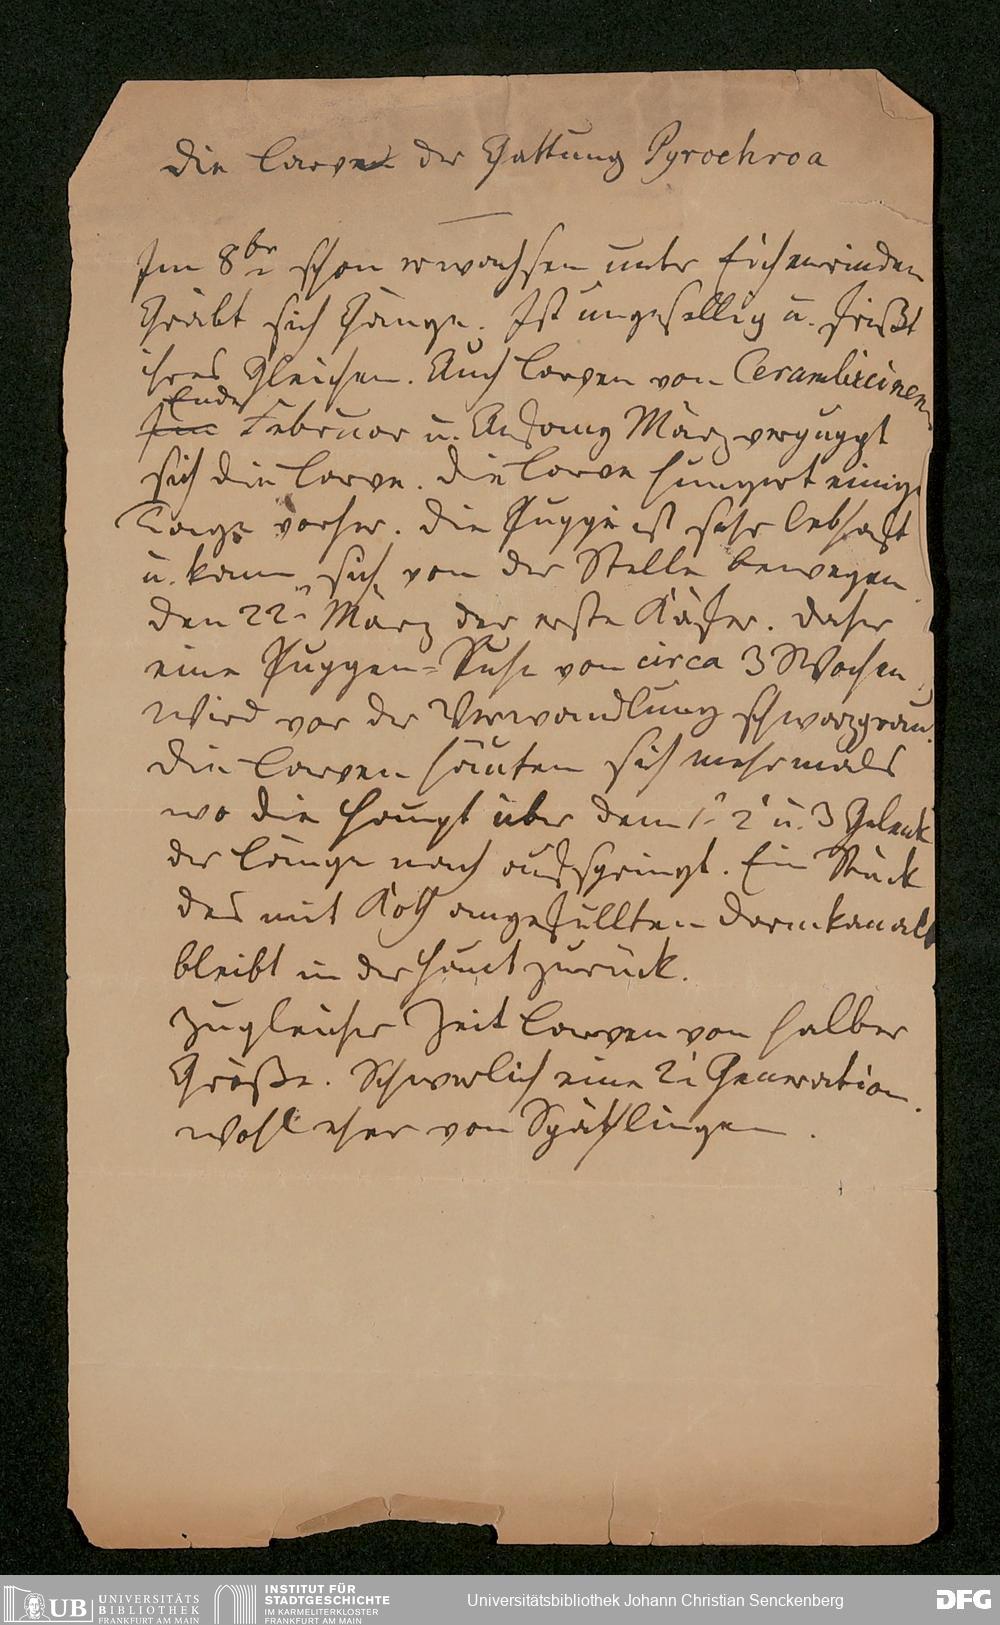 Die Larve der Gattung Pyrochroa
Im 8br schon erwachsen unter Eichenrinden
Gräbt sich Gänge. Ist ungesellig u. frißt
ihres Gleichen. Auch Larven von Cerambicinen
Ende
Im Februar u. Anfang März verpuppt
sich die Larve. Die Larve hungert einige
Tage vorher. Die Puppe ist sehr lebhaft
u. kann sich von der Stelle bewegen.
Den 22n März der erste Käfer. Daher
eine Puppen=Ruhe von circa 3 Wochen
Wird vor der Verwandlung schwarzgrau.
Die Larven häuten sich mehrmals
wo die Haupt über dem 1. 2 u. 3 Gelenk
der Länge nach aufspringt. Ein Stück
des mit Koth angefüllten Darmkanals
bleibt in der Haut zurück.
Zugleicher Zeit Larven von halber
Größe. Schwerlich eine 2i Generation.
wohl eher von Spätlingen.
UB UNIVERSITÄTS
BIBLIOTHEK
FRANKFURT AM MAIN
INSTITUT FÜR
STADTGESCHICHTE
IM KARMELITERKLOSTER
FRANKFURT AM MAIN
Universitätsbibliothek Johann Christian Senckenberg
DFG